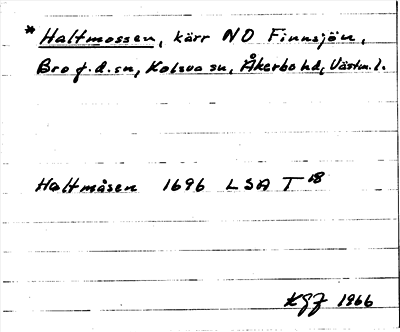 * Haltmossen, kärr NO Finnsjön,
Bro f.d.sn, Kolsva sn, Åkerbo hd, Västm.l.
Haltmåsen 1696 LSA T 18
KGJ 1966